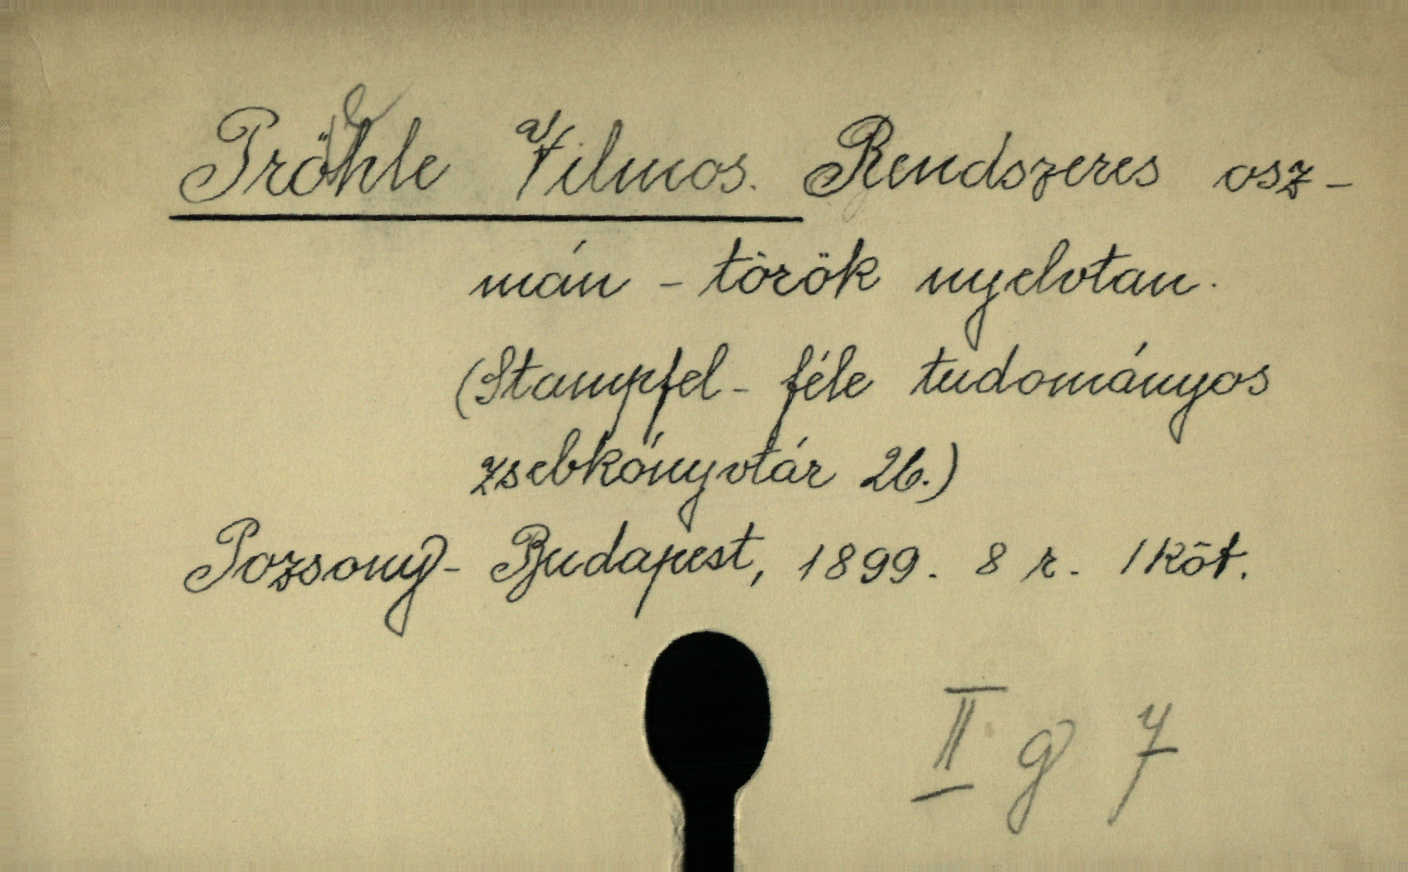 Pröhle Vilmos. Rendszeres osz-
mán - török nyelvtan.
(Stampfel - féle tudományos
zsebkönyvtár 26.)
Pozsony - Budapest, 1899. 8 r. 1 köt.
II g 7